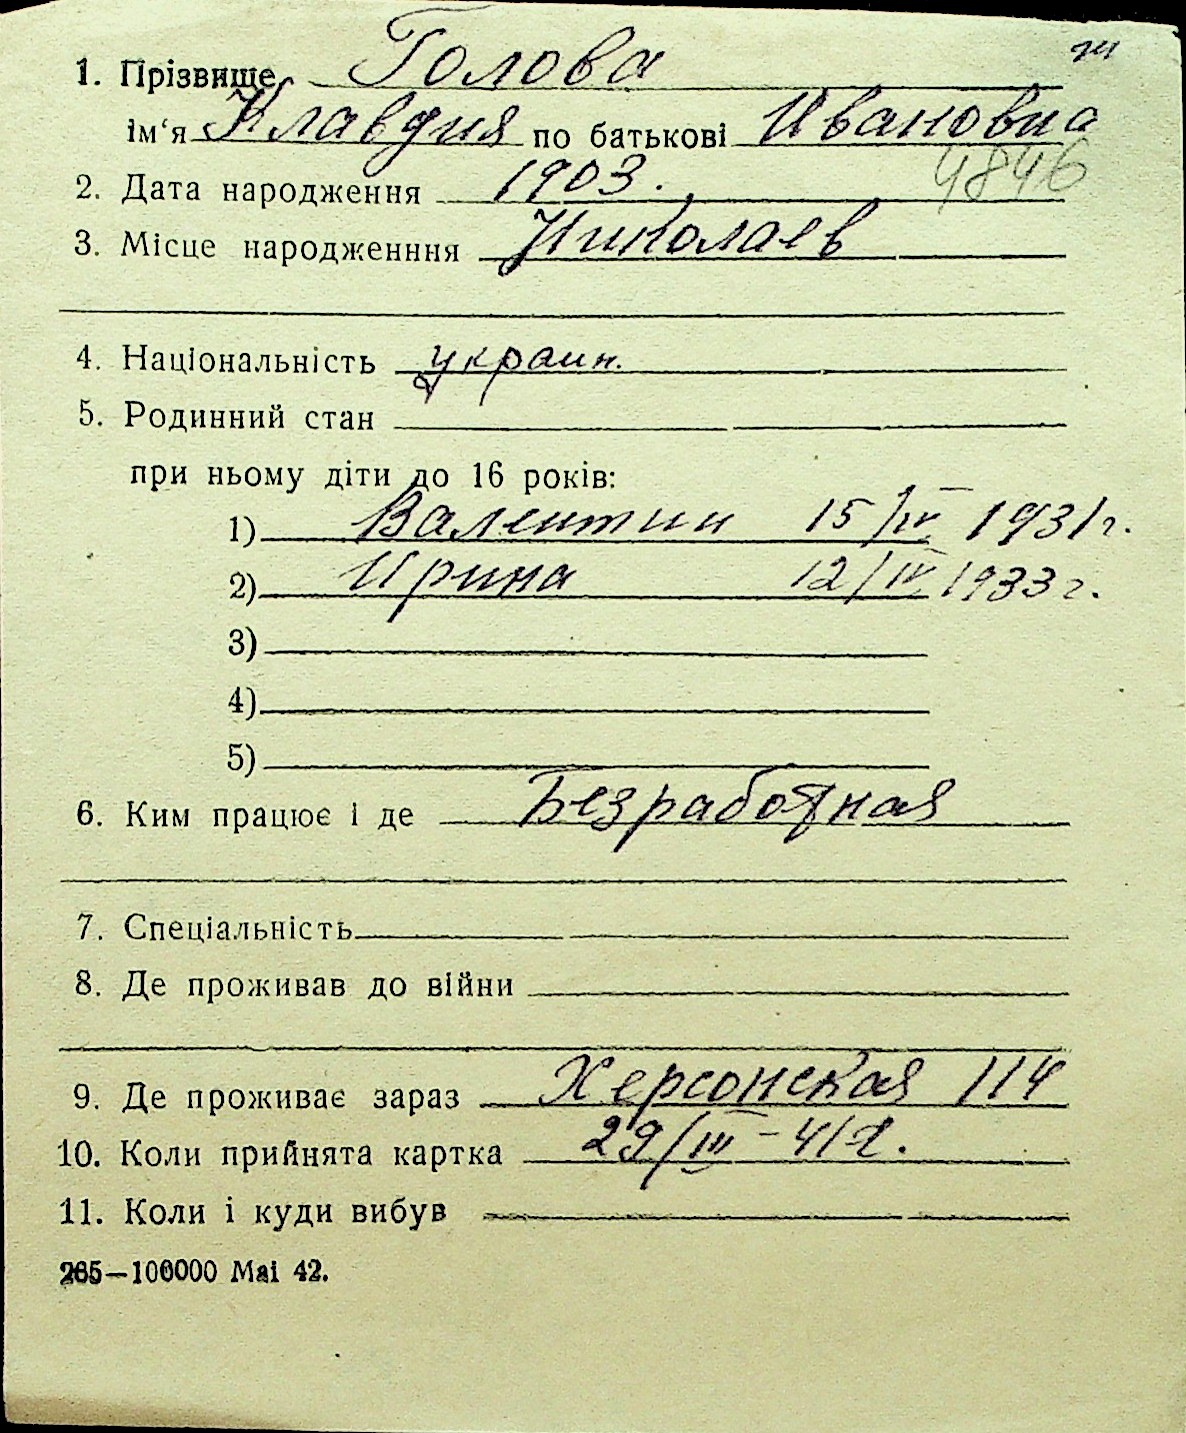 1. Прізвище Голова
ім‘я Клавдия по батькові Ивановна
4846
2. Дата народження 1903.
3. Місце народженння Николаев
4. Національність украин.
5. Родинний стан
при ньому діти до 16 років:
1) Валентин 15/IV 1931г.
2) Ирина 12/IV 1933г.
3)
4)
5)
6. Ким працює і де Безработная
7. Спеціальність
8. Де проживав до війни
9. Де проживає зараз Херсонская 114
10. Коли прийнята картка 29/III-
11. Коли і куди вибув
265—100000 Mai 42.